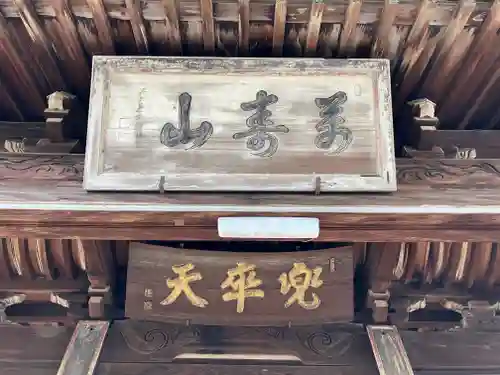 萬壽山
兜率天